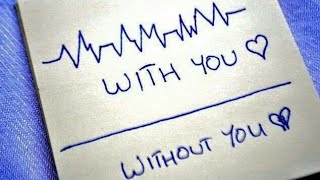 WITH YOU ♡
WITHOUT YOU 💔